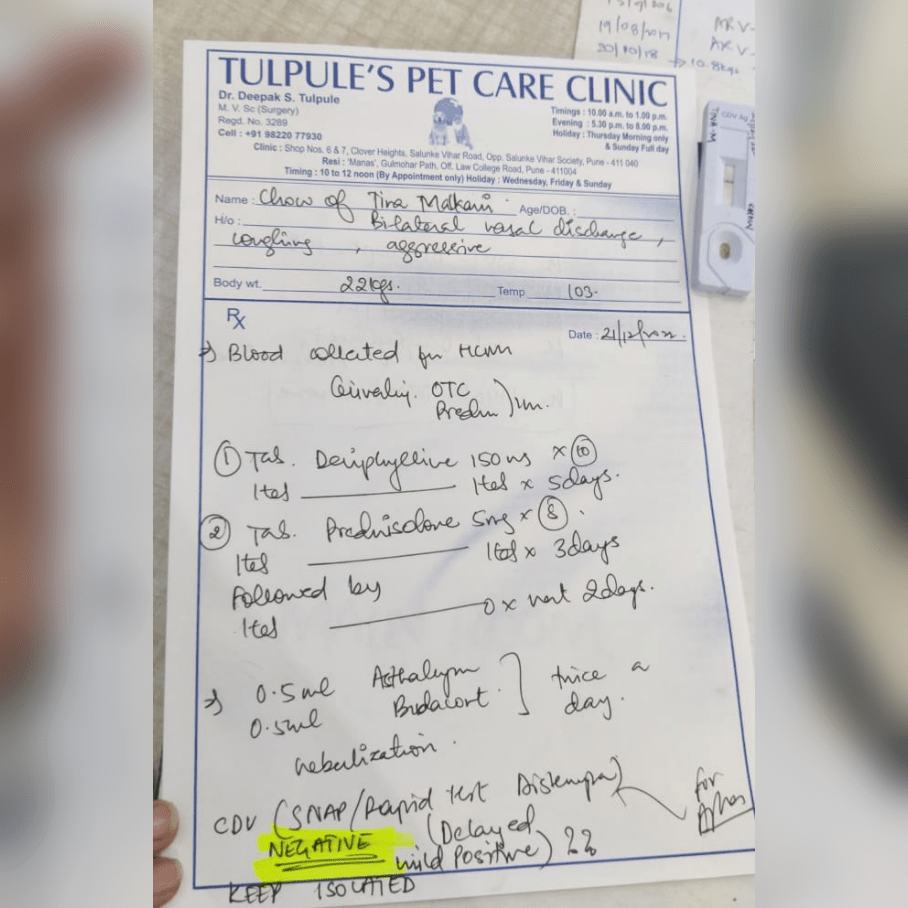 19/08/2017
20/10/18
10.8kgs
ARV-
CDV Ag
TULPULE'S PET CARE CLINIC
Dr. Deepak S. Tulpule
M. V. Sc (Surgery)
Regd. No. 3289
Cell : +91 98220 77930
Timings : 10.00 a.m. to 1.00 p.m.
Evening : 5.30 p.m. to 8.00 p.m.
Holiday : Thursday Morning only
& Sunday Full day
Clinic : Shop Nos. 6 & 7, Clover Heights, Salunke Vihar Road, Opp. Salunke Vihar Society, Pune - 411 040
Resi : 'Manas', Gulmohar Path, Off. Law College Road, Pune - 411004
Timing : 10 to 12 noon (By Appointment only) Holiday : Wednesday, Friday & Sunday
Name : Chow of Tina Malkani Age/DOB. :
H/o : Bilateral nasal discharge,
coughing, aggressive
Body wt. 22kgs. Temp 103.
Rx
Date : 21/12/
Blood collected for
OTC
Predn ) im.
① Tab. Deriphylline 150 mg x ⑩
1tab 1tab x 5days.
② Tab. Prednisolone 5mg x ⑧.
1tab 1tab x 3days
Followed by
1tab 0 x next 2days.
0.5ml Asthalyn
0.5ml Budacort ] twice a day.
nebulization.
CDV (SNAP/Rapid test Distemper)
NEGATIVE (Delayed
mild Positive) ??
for
KEEP ISOLATED